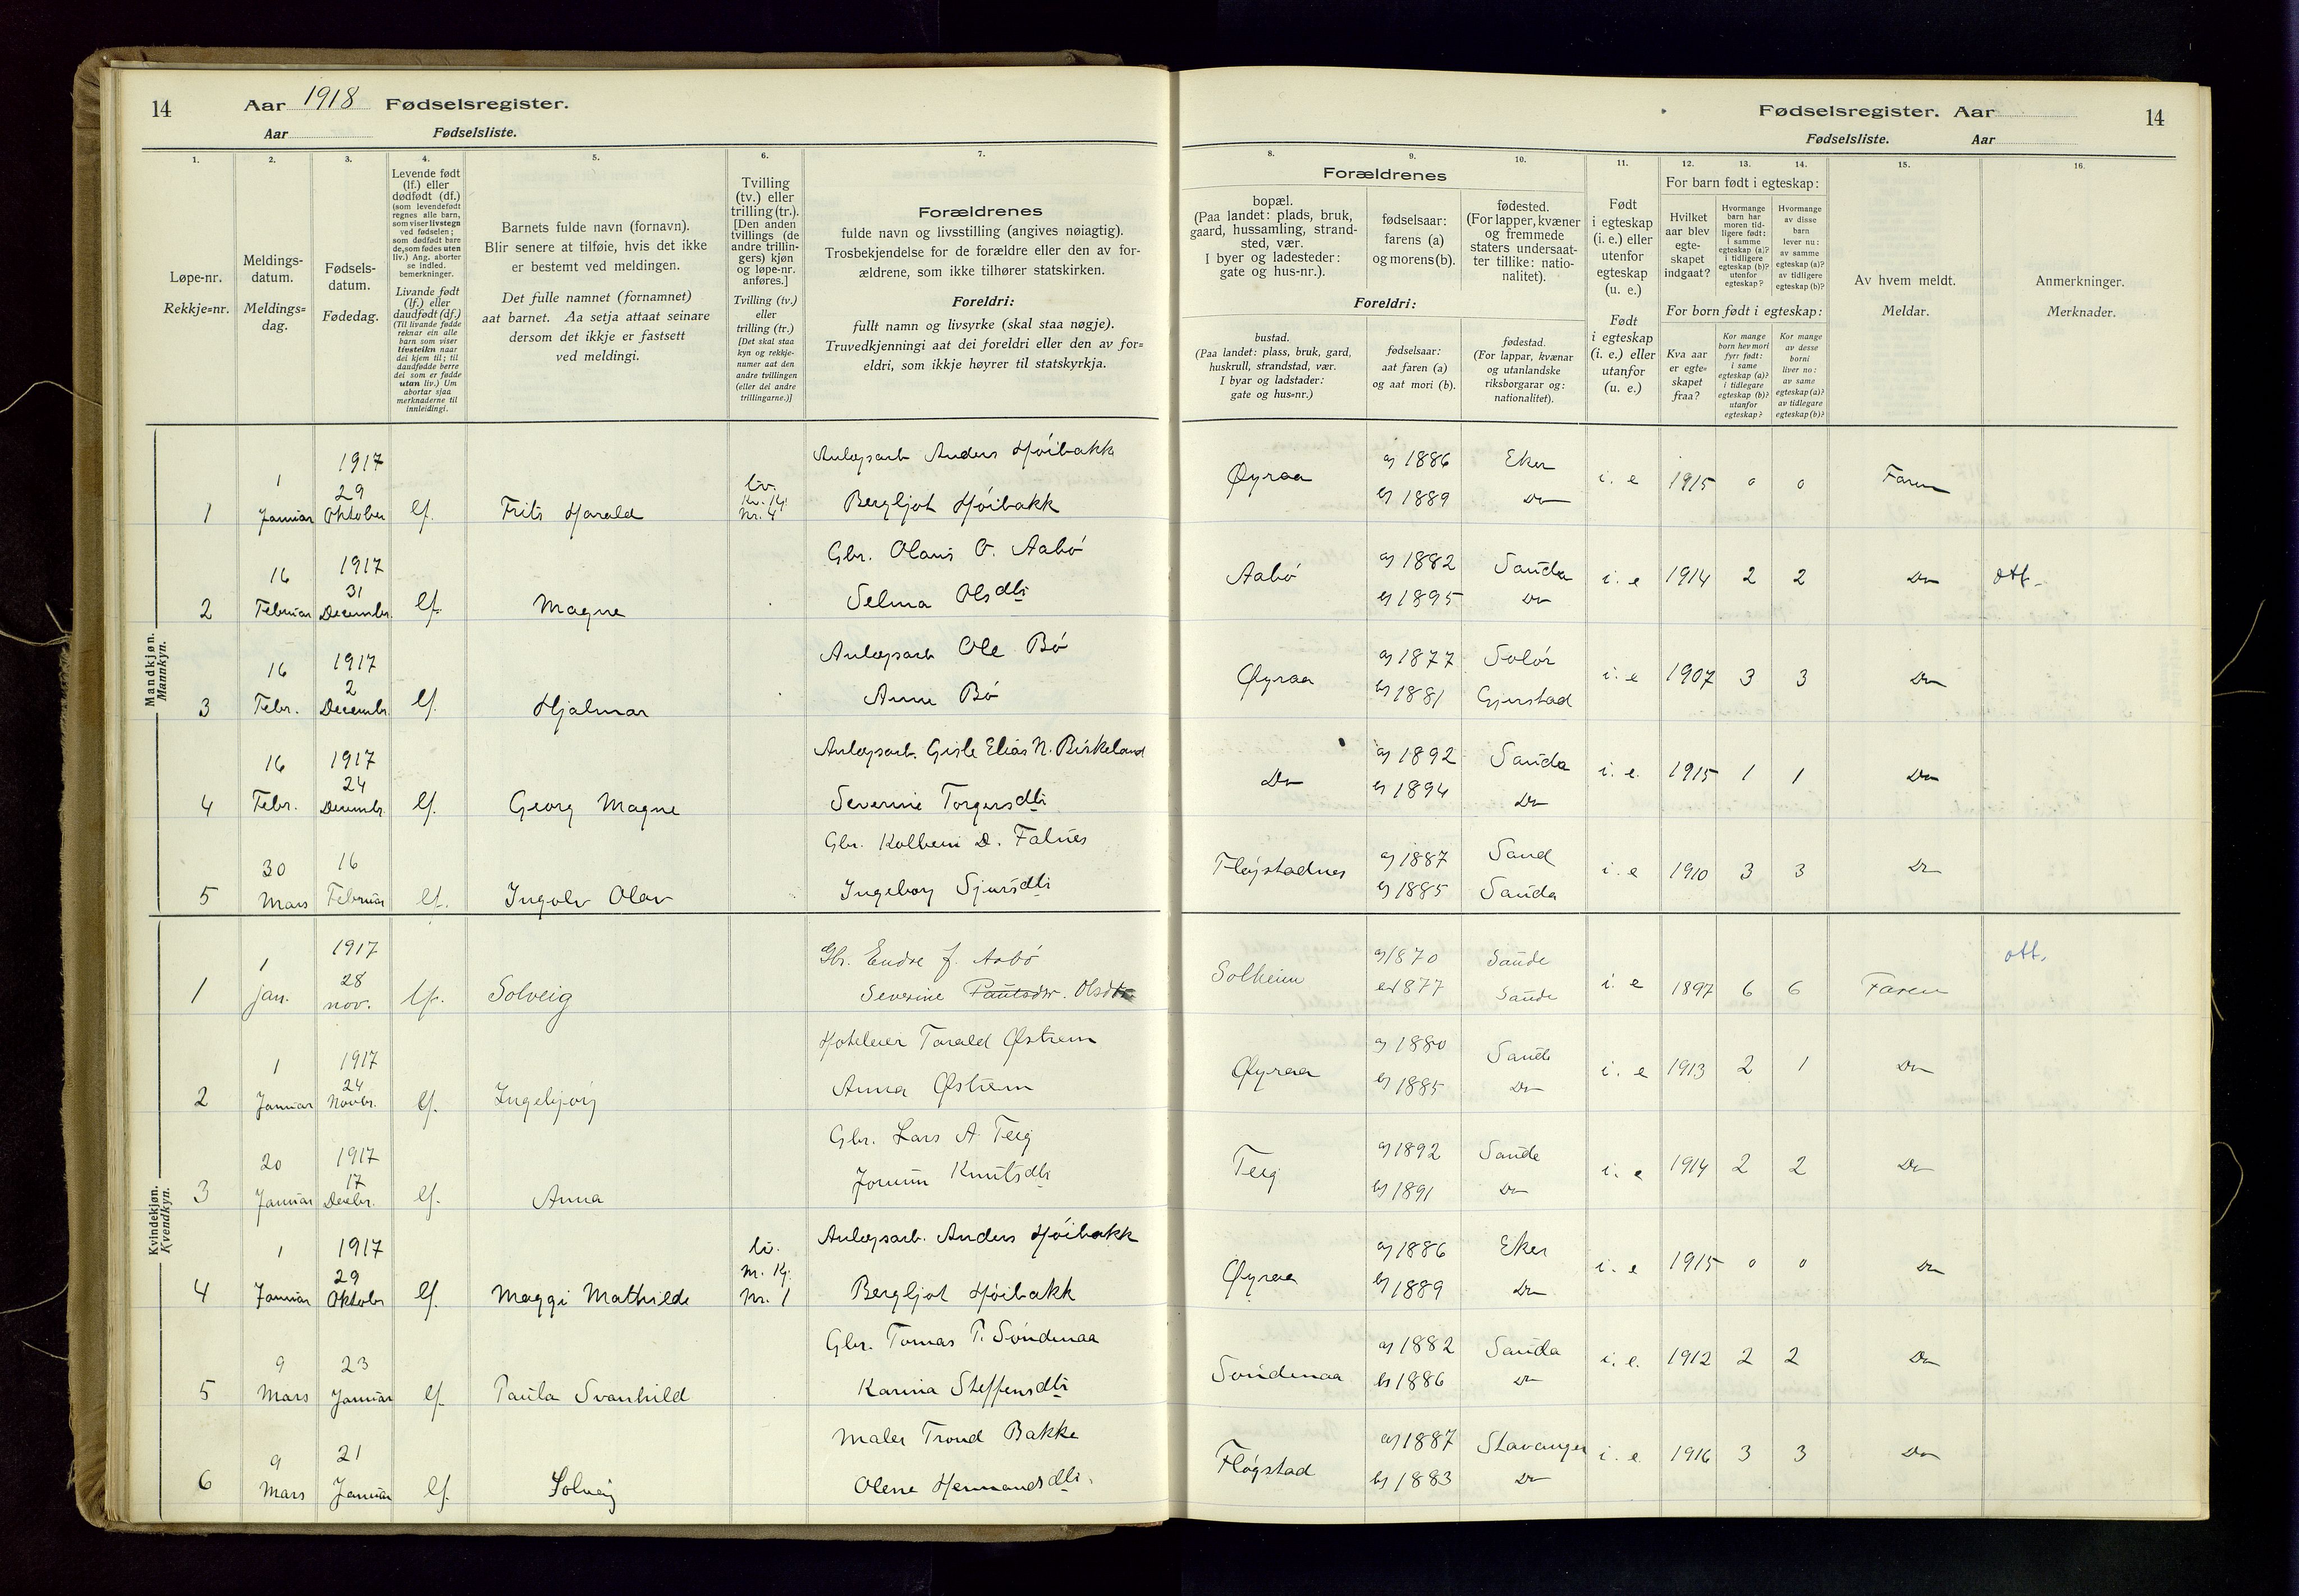 14 Aar 1918 Fødselsregister.
Aar Fødselsliste.
Fødselsregister. Aar 14
Fødselsliste. Aar
1. 2. 3. 4. 5. 6. 7.
Løpe-nr.
Rekkje=nr.
Meldings-
datum.
Meldings=
dag.
Fødsels-
datum.
Fødedag.
Levende født
(lf.) eller
dødfødt (df.)
(som levendefødt
regnes alle barn,
som viser livstegn
ved fødselen;
som dødfødt bare
de, som fødes uten
liv.) Ang. aborter
se indled.
bemerkninger.
Livande født
(lf.) eller
daudfødt (df.)
(Til livande fødde
reknar ein alle
barn som viser
livsteikn naar
dei kjem til; til
daudfødde berre
dei som er fødde
utan liv.) Um
abortar sjaa
merknaderne til
innleidingi.
Barnets fulde navn (fornavn).
Blir senere at tilføie, hvis det ikke
er bestemt ved meldingen.
Det fulle namnet (fornamnet)
aat barnet. Aa setja attaat seinare
dersom det ikkje er fastsett
ved meldingi.
Tvilling
(tv.) eller
trilling (tr.).
[Den anden
tvillings (de
andre trillin-
gers) kjøn
og løpe-nr.
anføres.]
Tvilling (tv.)
eller
trilling (tr.)
[Det skal staa
kyn og rekkje-
numer aat den
andre tvillingen
(eller dei andre
trillingarne.)]
Forældrenes
fulde navn og livsstilling (angives nøiagtig).
Trosbekjendelse for de forældre eller den av for-
ældrene, som ikke tilhører statskirken.
Foreldri:
fullt namn og livsyrke (skal staa nøgje).
Truvedkjenningi aat dei foreldri eller den av for=
eldri, som ikkje høyrer til statskyrkja.
8. 9. 10. 11. 12. 13. 14. 15. 16.
Forældrenes
bopæl.
(Paa landet: plads, bruk,
gaard, hussamling, strand-
sted, vær.
I byer og ladesteder:
gate og hus-nr.).
fødselsaar:
farens (a)
og morens (b).
fødested.
(For lapper, kvæner
og fremmede
staters undersaat-
ter tillike: natio-
nalitet).
Foreldri:
bustad.
(Paa landet: plass, bruk, gard,
huskrull, strandstad, vær.
I byar og ladstader:
gate og hus=nr.)
fødselsaar:
aat faren (a)
og aat mori (b).
fødestad.
(For lappar, kvænar
og utanlandske
riksborgarar og:
nationalitet).
Født
i egteskap
(i. e.) eller
utenfor
egteskap
(u. e.)
Født
i egteskap
(i. e.) eller
utanfor
(u. e.)
For barn født i egteskap:
Hvilket
aar blev
egte-
skapet
indgaat?
Hvormange
barn har
moren tid-
ligere født:
i samme
egteskap (a)?
i tidligere
egteskap (b)?
utenfor
egteskap?
Hvormange
av disse
barn
lever nu:
av samme
egteskap (a)?
av tidligere
egteskap (b)?
For born født i egteskap:
Kva aar
er egte=
skapet
fraa?
Kor mange
born hev mori
fyrr født:
i same
egteskap (a)?
i tidlegare
egteskap (b)?
utanfor
egteskap?
Kor mange
av desse
borni
liver no:
av same
egteskap (a)?
av tidlegare
egteskap (b)?
Av hvem meldt.
Meldar.
Anmerkninger.
Merknader.
Mandkjøn.
Mannkyn.
1 1 Januar 1917 29 Oktober lf. Frits Harald tv. Kv. Kj. Nr. 4 Anlegsarb Anders Høibakk
Bergljot Høibakk
Øyraa a) 1886 Eker i. e 1915 0 0 Faren
b) 1889 Do
2 16 Februar 1917 31 Decembr. lf. Magne Gbr. Olaus O. Aabø
Selma Olsdtr
Aabø a) 1882 Sauda i. e 1914 2 2 Do att.
b) 1895 Do
3 16 Febr. 1917 2 Decembr. lf. Hjalmar Anlegsarb Ole Bø
Anne Bø
Øyraa a) 1877 Solør i. e 1907 3 3 Do
b) 1881 Gjerstad
4 16 Febr. 1917 24 Decembr. lf. Georg Magne Anlegsarb. Gisle Elias N. Birkeland
Severine Torgersdtr
Do a) 1892 Sauda i. e. 1915 1 1 Do
b) 1894 Do
5 30 Mars 16 Februar lf. Ingolv Olav Gbr. Kolbein D. Falnes
Ingeborg Sjursdtr
Fløgstadnes a) 1887 Sand i. e 1910 3 3 Do
b) 1885 Sauda
Kvindekjøn.
Kvendkyn.
1 1 jan. 1917 28 nov. lf. Solveig Gbr. Endre J. Aabø
Severine Paulsdtr. Olsdtr.
Solheim a) 1870 Saude i. e 1897 6 6 Faren att.
b) 1877 Saude
2 1 Januar 1917 24 Novbr. lf. Ingebjørg Hoteleier Torald Østrem
Anna Østrem
Øyraa a) 1880 Saude i. e 1913 2 1 Do
b) 1885 Do
3 20 Januar 1917 17 Decbr. lf. Anna Gbr. Lars A. Teig
Jorunn Knutsdtr
Teig a) 1892 Saude i. e 1914 2 2 Do
b) 1891 Do
4 1 Januar 1917 29 Oktobr lf. Maggi Mathilde tv. M. Kj. Nr. 1 Anlegsarb. Anders Høibakk
Bergljot Høibakk
Øyraa a) 1886 Eker i. e 1915 0 0 Do
b) 1889 Do
5 9 Mars 23 Januar lf. Paula Svanhild Gbr. Tomas T. Søndenaa
Karina Steffensdtr
Søndenaa a) 1882 Sauda i. e. 1912 2 2 Do
b) 1886 Do
6 9 Mars 21 Januar lf. Solveig Maler Trond Bakke
Olene Hermandsdtr.
Fløgstad a) 1887 Stavanger i. e. 1916 3 3 Do
b) 1883 Do